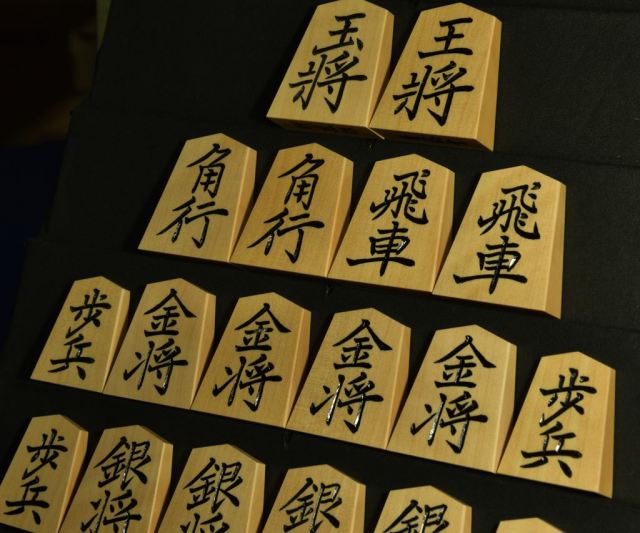 玉將 王將
角行 角行 飛車 飛車
歩兵 金将 金将 金将 金将 歩兵
歩兵 銀将 銀将 銀 銀